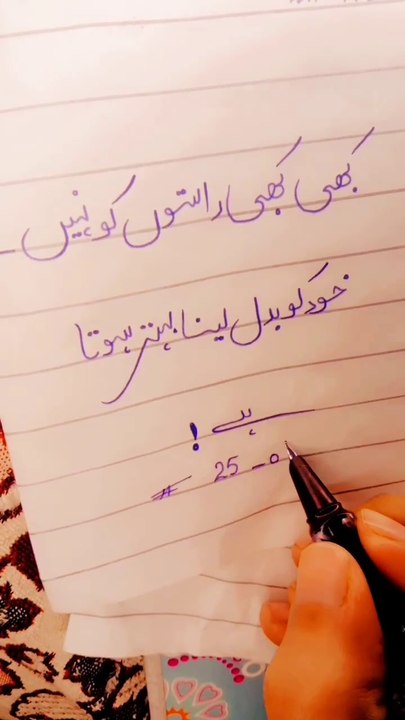 کبھی کبھی راستوں کو نہیں
خود کو بدل لینا بہتر ہوتا
ہے !
# 25 - o